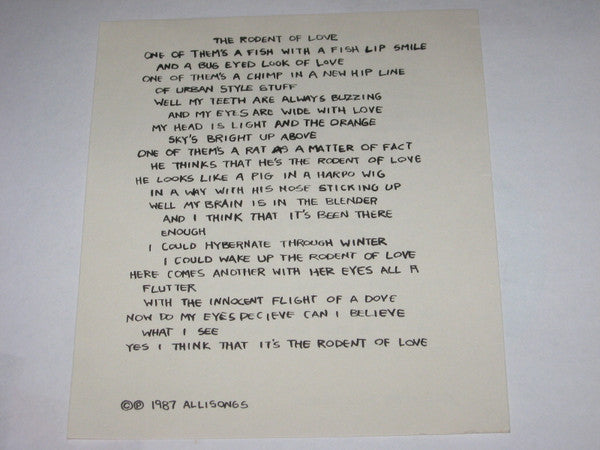 THE RODENT OF LOVE
ONE OF THEM'S A FISH WITH A FISH LIP SMILE
AND A BUG EYED LOOK OF LOVE
ONE OF THEM'S A CHIMP IN A NEW HIP LINE
OF URBAN STYLE STUFF
WELL MY TEETH ARE ALWAYS BUZZING
AND MY EYES ARE WIDE WITH LOVE
MY HEAD IS LIGHT AND THE ORANGE
SKY'S BRIGHT UP ABOVE
ONE OF THEM'S A RAT AS A MATTER OF FACT
HE THINKS THAT HE'S THE RODENT OF LOVE
HE LOOKS LIKE A PIG IN A HARPO WIG
IN A WAY WITH HIS NOSE STICKING UP
WELL MY BRAIN IS IN THE BLENDER
AND I THINK THAT IT'S BEEN THERE
ENOUGH
I COULD HYBERNATE THROUGH WINTER
I COULD WAKE UP THE RODENT OF LOVE
HERE COMES ANOTHER WITH HER EYES ALL A
FLUTTER
WITH THE INNOCENT FLIGHT OF A DOVE
NOW DO MY EYES DECIEVE CAN I BELIEVE
WHAT I SEE
YES I THINK THAT IT'S THE RODENT OF LOVE
©℗ 1987 ALLISONGS